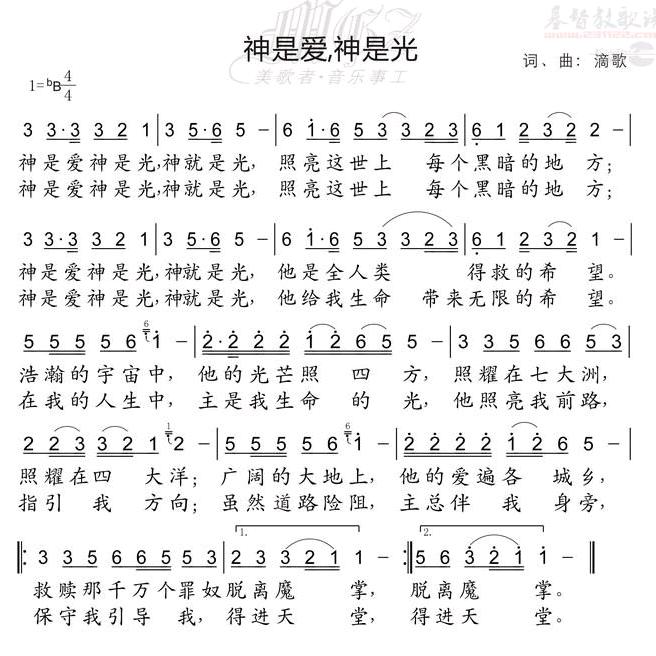 基督教歌谱
神是爱,神是光
美歌者·音乐事工
词、曲：滴歌
1=ᵇB 4/4
3 3·3 3 2 1 | 3 5·6 5 – | 6 i·6 5 3 3 2 3 | 6 1 2 3 2 2 – |
神是爱神是光,神就是光, 照亮这世上 每个黑暗的地 方;
神是爱神是光,神就是光, 照亮这世上 每个黑暗的地 方;
3 3·3 3 2 1 | 3 5·6 5 – | 6 i·6 5 3 3 2 3 | 6 1 2 3 2 1 – |
神是爱神是光,神就是光, 他是全人类 得救的希 望。
神是爱神是光,神就是光, 他给我生命 带来无限的希 望。
5 5 5 5 6 6 i – | 2·2 2 2 i 2 6 5 5 – | 3 3 5 6 5 5 3 |
浩瀚的宇宙中, 他的光芒照 四 方, 照耀在七大洲,
在我的人生中, 主是我生命 的 光, 他照亮我前路,
2 2 3 3 2 1 1 2 – | 5 5 5 5 6 6 i – | 2 2 2 2 i 2 6 5 – |
照耀在四 大洋; 广阔的大地上, 他的爱遍各 城乡,
指引 我 方向; 虽然道路险阻, 主总伴 我 身旁,
‖: 3 3 5 6 6 5 5 3 | 1. 2 3 3 2 1 1 – :‖ 2. 5 6 3 2 1 1 – ‖
救赎那千万个罪奴脱离魔 掌, 脱离魔 掌。
保守我引导 我, 得进天 堂, 得进天 堂。